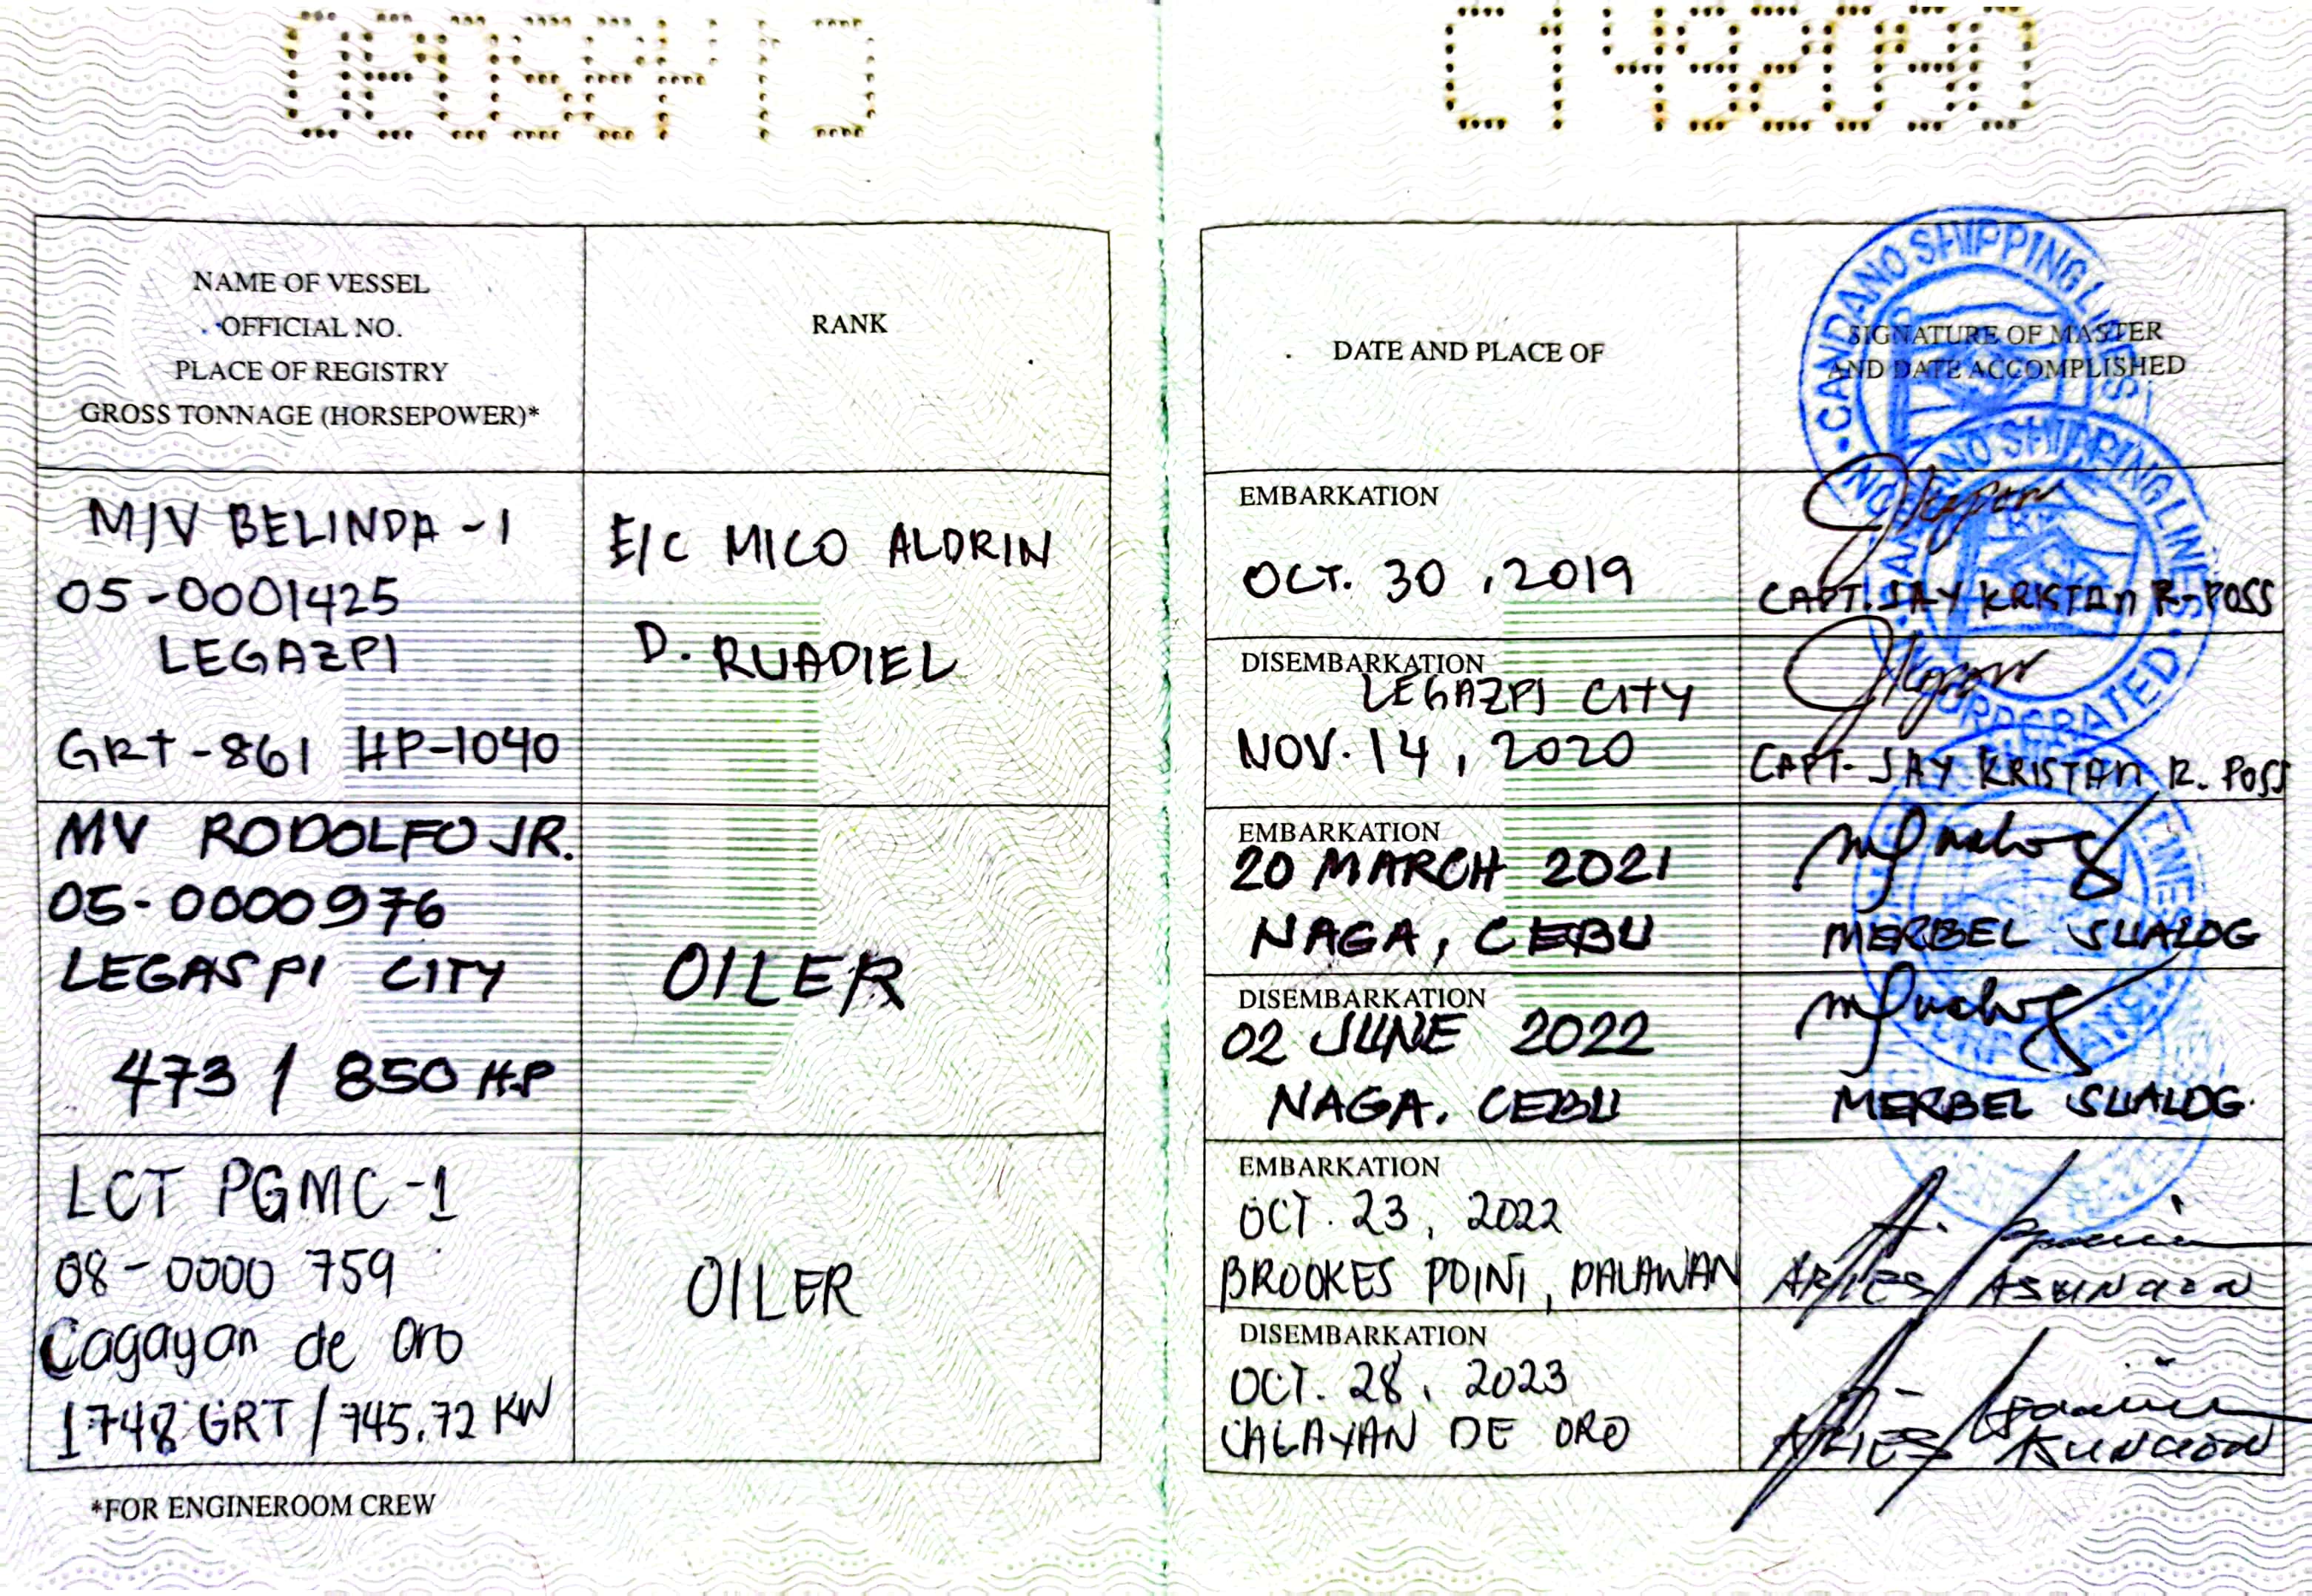 C1492090
NAME OF VESSEL
OFFICIAL NO.
PLACE OF REGISTRY
GROSS TONNAGE (HORSEPOWER)*
RANK
M/V BELINDA - 1
05-0001425
LEGAZPI
GRT-861 HP-1040
E/C MICO ALDRIN
D. RUADIEL
MV RODOLFO JR.
05-0000976
LEGASPI CITY
473 / 850 H.P
OILER
LCT PGMC-1
08-0000 759
Cagayan de oro
1748 GRT / 745.72 KW
OILER
*FOR ENGINEROOM CREW
DATE AND PLACE OF
SIGNATURE OF MASTER
AND DATE ACCOMPLISHED
CANDANO SHIPPING LINES
EMBARKATION
OCT. 30, 2019
CAPT. JAY KRISTAN R. POSS
DISEMBARKATION
LEGAZPI CITY
NOV. 14, 2020
CAPT. JAY KRISTAN R. POSS
EMBARKATION
20 MARCH 2021
NAGA, CEBU
MERBEL SUALOG
DISEMBARKATION
02 JUNE 2022
NAGA. CEBU
MERBEL SUALOG.
EMBARKATION
OCT. 23, 2022
BROOKES POINT, PALAWAN
ARIES
DISEMBARKATION
OCT. 28, 2023
CAGAYAN DE ORO
ARIES ASUNCION